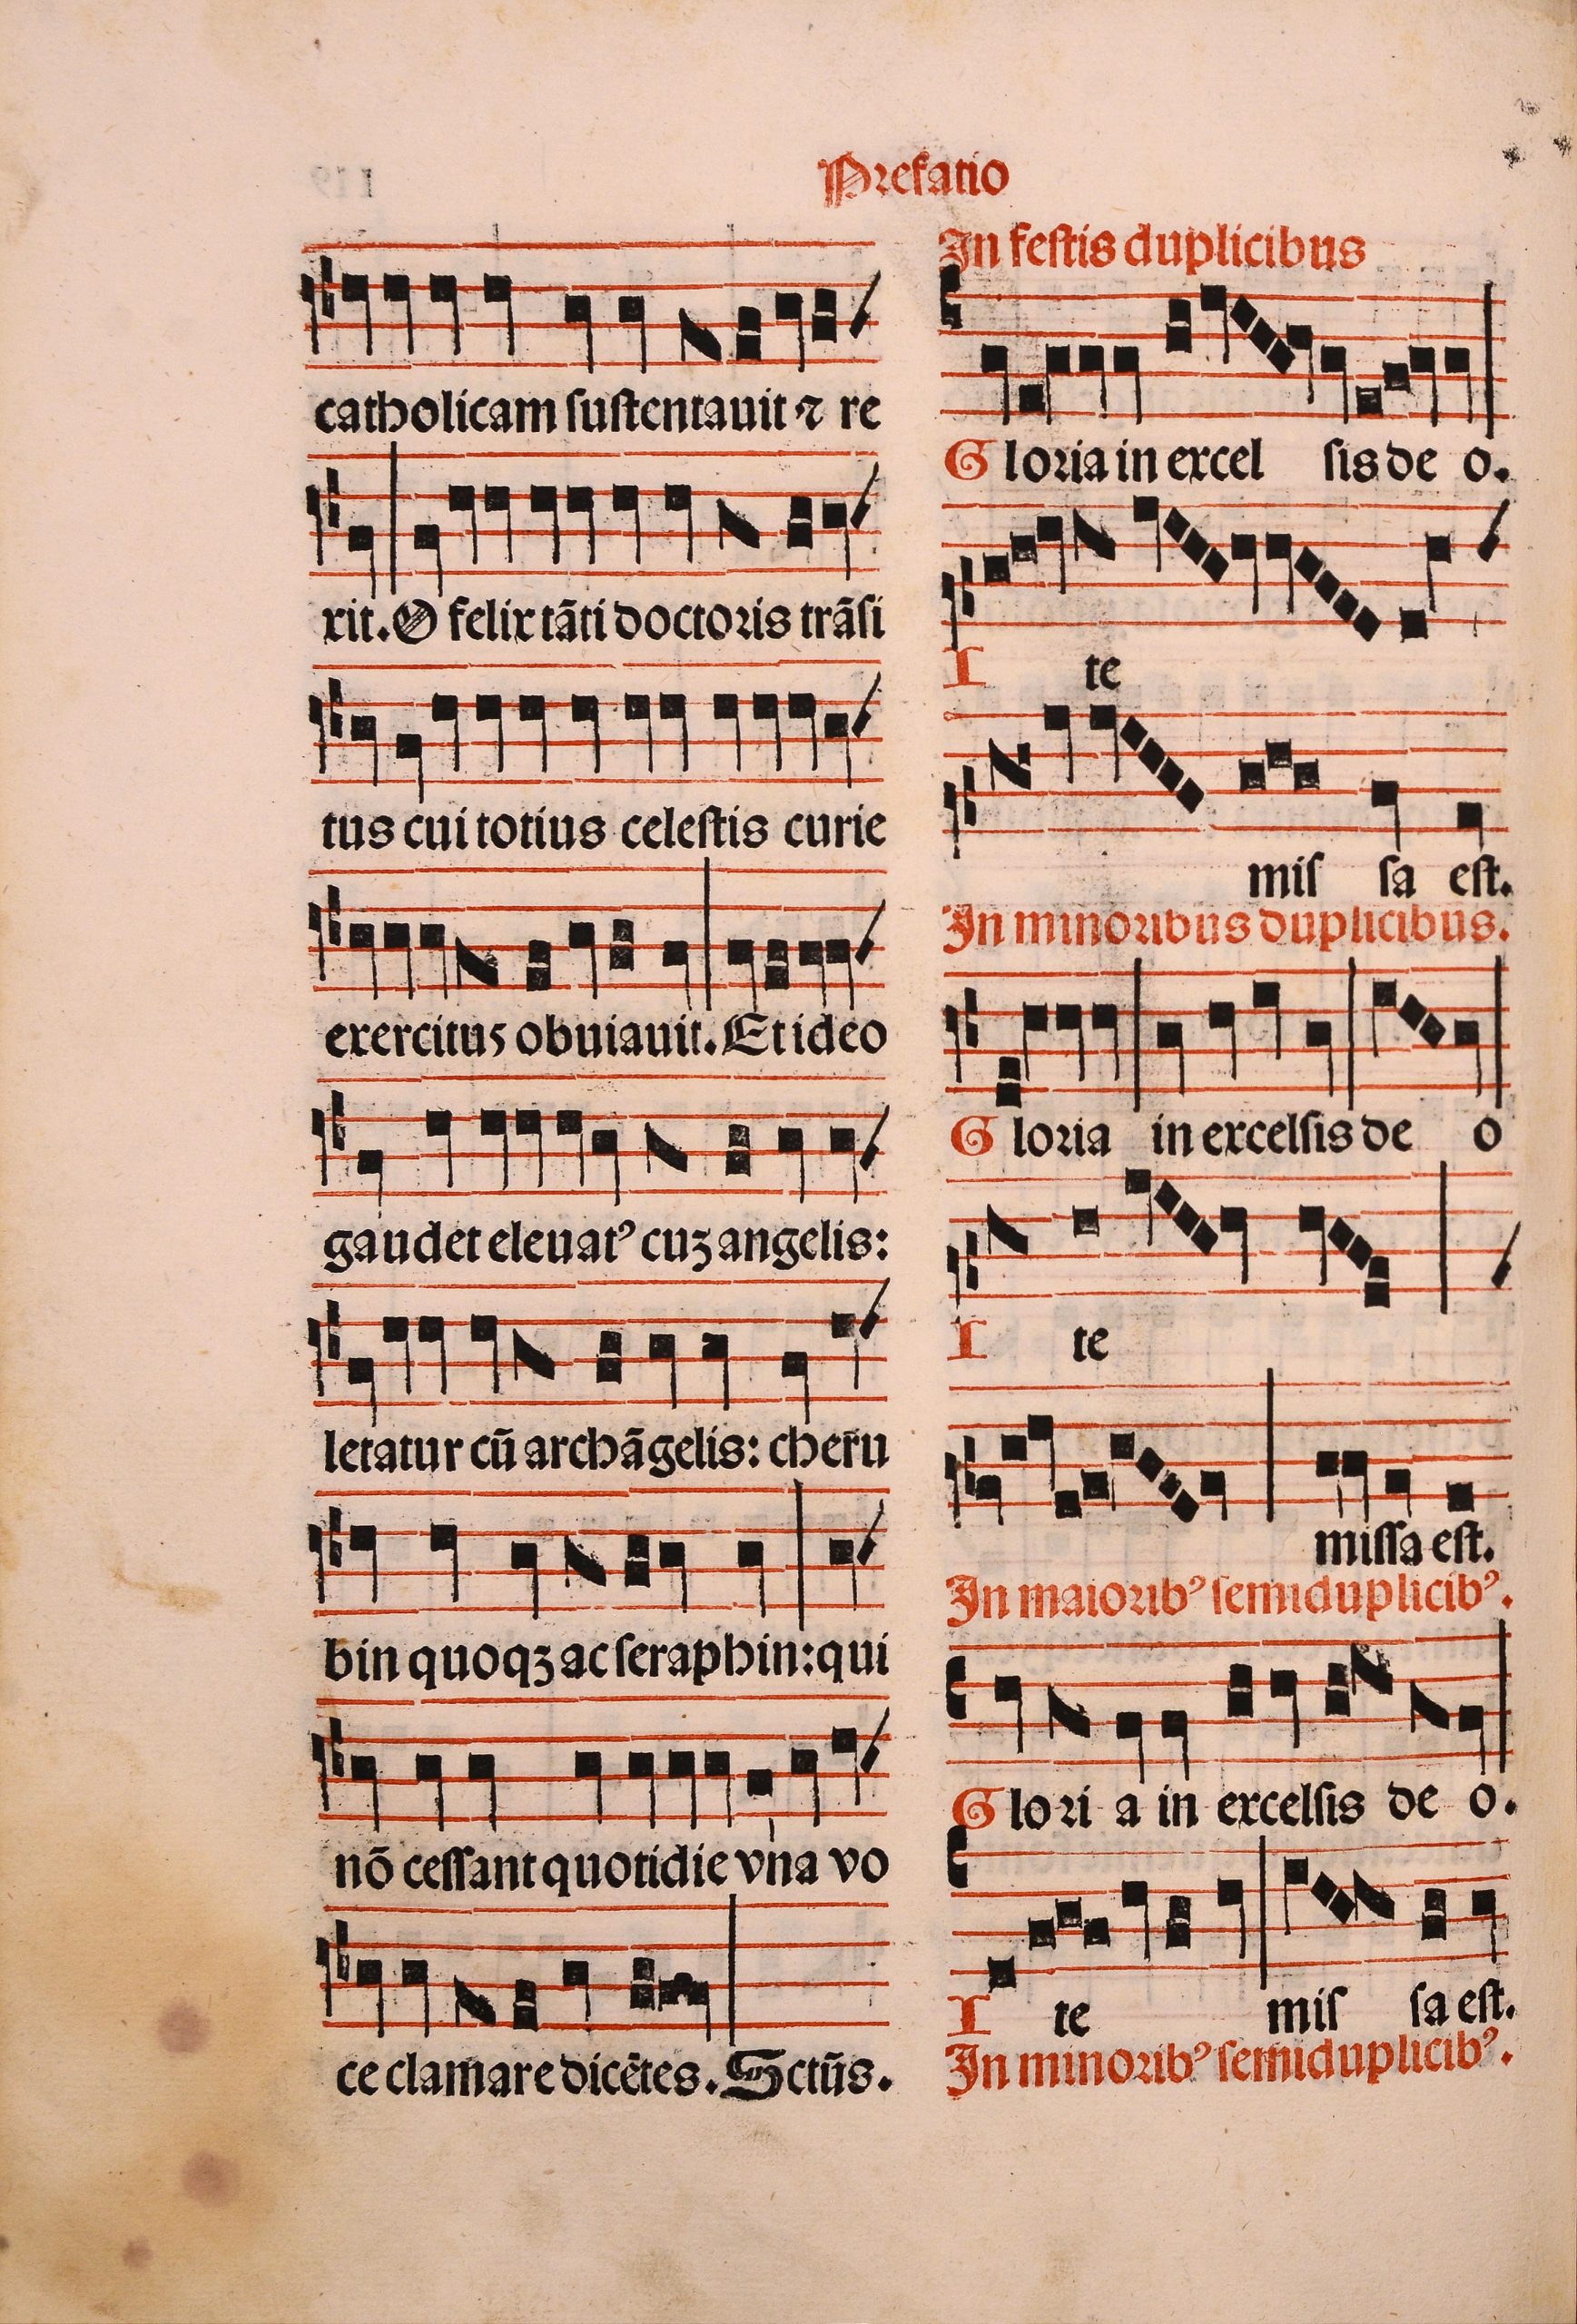 Prefatio
catholicam sustentauit ⁊ re
xit. O felix tāti doctoris trāsi
tus cui totius celestis curie
exercitus obuiauit. Et ideo
gaudet eleuatꝰ cuȝ angelis:
letatur cū archāgelis: cheru
bin quoqȝ ac seraphin: qui
nō cessant quotidie vna vo
ce clamare dicētes. Sctūs.
In festis duplicibus
Gloria in excel sis de o.
I te
mis sa est.
In minoribus duplicibus.
Gloria in excelsis de o
I te
missa est.
In maioribꝰ semiduplicibꝰ.
Glori a in excelsis de o.
I te mis sa est.
In minoribꝰ semiduplicibꝰ.